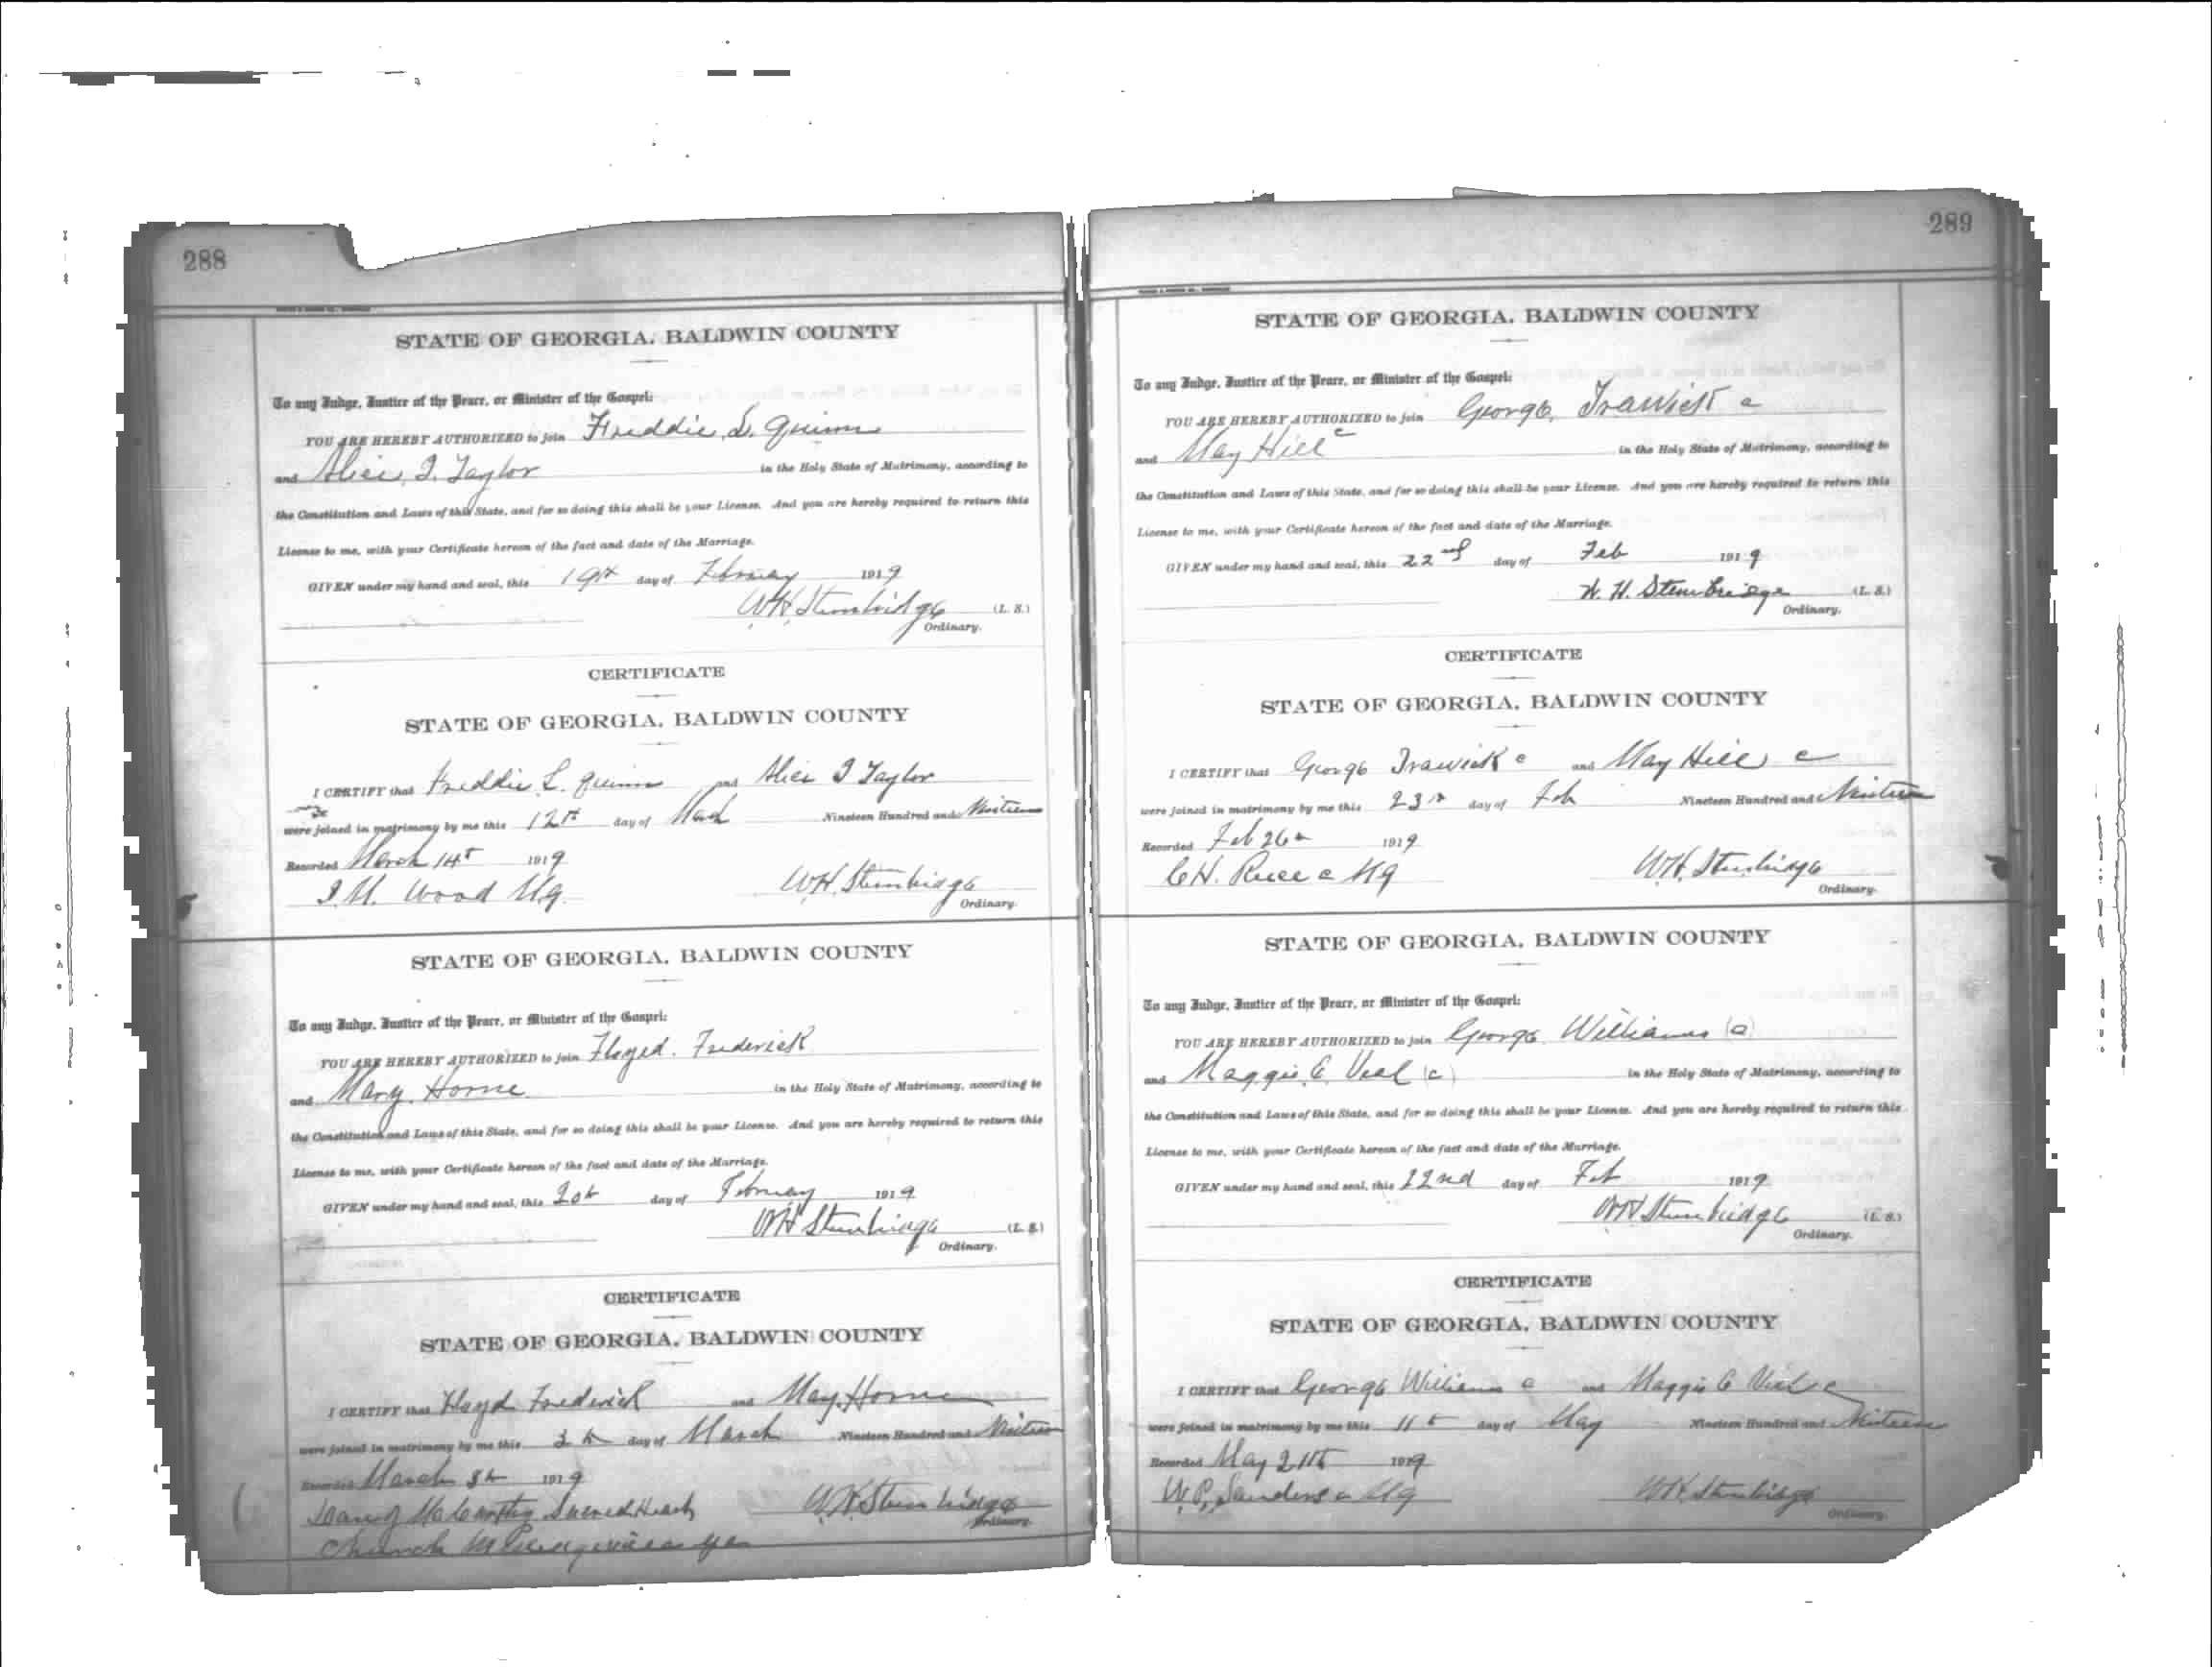 288
STATE OF GEORGIA, BALDWIN COUNTY
To any Judge, Justice of the Peace, or Minister of the Gospel:
YOU ARE HEREBY AUTHORIZED to join Freddie L. Quinn
and Alice I. Taylor in the Holy State of Matrimony, according to
the Constitution and Laws of this State, and for so doing this shall be your License. And you are hereby required to return this
License to me, with your Certificate hereon of the fact and date of the Marriage.
GIVEN under my hand and seal, this 19th day of February 1919
W.H. Stembridge (L. S.)
Ordinary.
CERTIFICATE
STATE OF GEORGIA, BALDWIN COUNTY
I CERTIFY that Freddie L. Quinn and Alice I Taylor
were joined in matrimony by me this 12th day of March Nineteen Hundred and Nineteen
Recorded March 14th 1919
Wood Mg W.H. Stembridge
Ordinary.
STATE OF GEORGIA, BALDWIN COUNTY
To any Judge, Justice of the Peace, or Minister of the Gospel:
YOU ARE HEREBY AUTHORIZED to join Floyed. Frederick
and Mary. Horne in the Holy State of Matrimony, according to
the Constitution and Laws of this State, and for so doing this shall be your License. And you are hereby required to return this
License to me, with your Certificate hereon of the fact and date of the Marriage.
GIVEN under my hand and seal, this 20th day of February 1919
W.H. Stembridge (L. S.)
Ordinary.
CERTIFICATE
STATE OF GEORGIA, BALDWIN COUNTY
I CERTIFY that Floyd Frederick and May Horne
were joined in matrimony by me this 3th day of March Nineteen Hundred and Nineteen
Recorded March 1919
McCarthy Sacred Heart W.H. Stembridge
Ordinary.
Church Milledgeville Ga
289
STATE OF GEORGIA, BALDWIN COUNTY
To any Judge, Justice of the Peace, or Minister of the Gospel:
YOU ARE HEREBY AUTHORIZED to join George Trawick c
and May Hill c in the Holy State of Matrimony, according to
the Constitution and Laws of this State, and for so doing this shall be your License. And you are hereby required to return this
License to me, with your Certificate hereon of the fact and date of the Marriage.
GIVEN under my hand and seal, this 22nd day of Feb 1919
W. H. Stembridge (L. S.)
Ordinary.
CERTIFICATE
STATE OF GEORGIA, BALDWIN COUNTY
I CERTIFY that George Trawick c and May Hill c
were joined in matrimony by me this 23rd day of Feb Nineteen Hundred and Nineteen
Recorded Feb 26th 1919
C.H. c Mg W.H. Stembridge
Ordinary.
STATE OF GEORGIA, BALDWIN COUNTY
To any Judge, Justice of the Peace, or Minister of the Gospel:
YOU ARE HEREBY AUTHORIZED to join George Williams (c)
and Maggie C. Veal (c) in the Holy State of Matrimony, according to
the Constitution and Laws of this State, and for so doing this shall be your License. And you are hereby required to return this
License to me, with your Certificate hereon of the fact and date of the Marriage.
GIVEN under my hand and seal, this 22nd day of Feb 1919
W.H. Stembridge (L. S.)
Ordinary.
CERTIFICATE
STATE OF GEORGIA, BALDWIN COUNTY
I CERTIFY that George Williams c and Maggie C Veal c
were joined in matrimony by me this 11th day of May Nineteen Hundred and Nineteen
Recorded May 21st 1919
W.P. Sanders c Mg W.H. Stembridge
Ordinary.